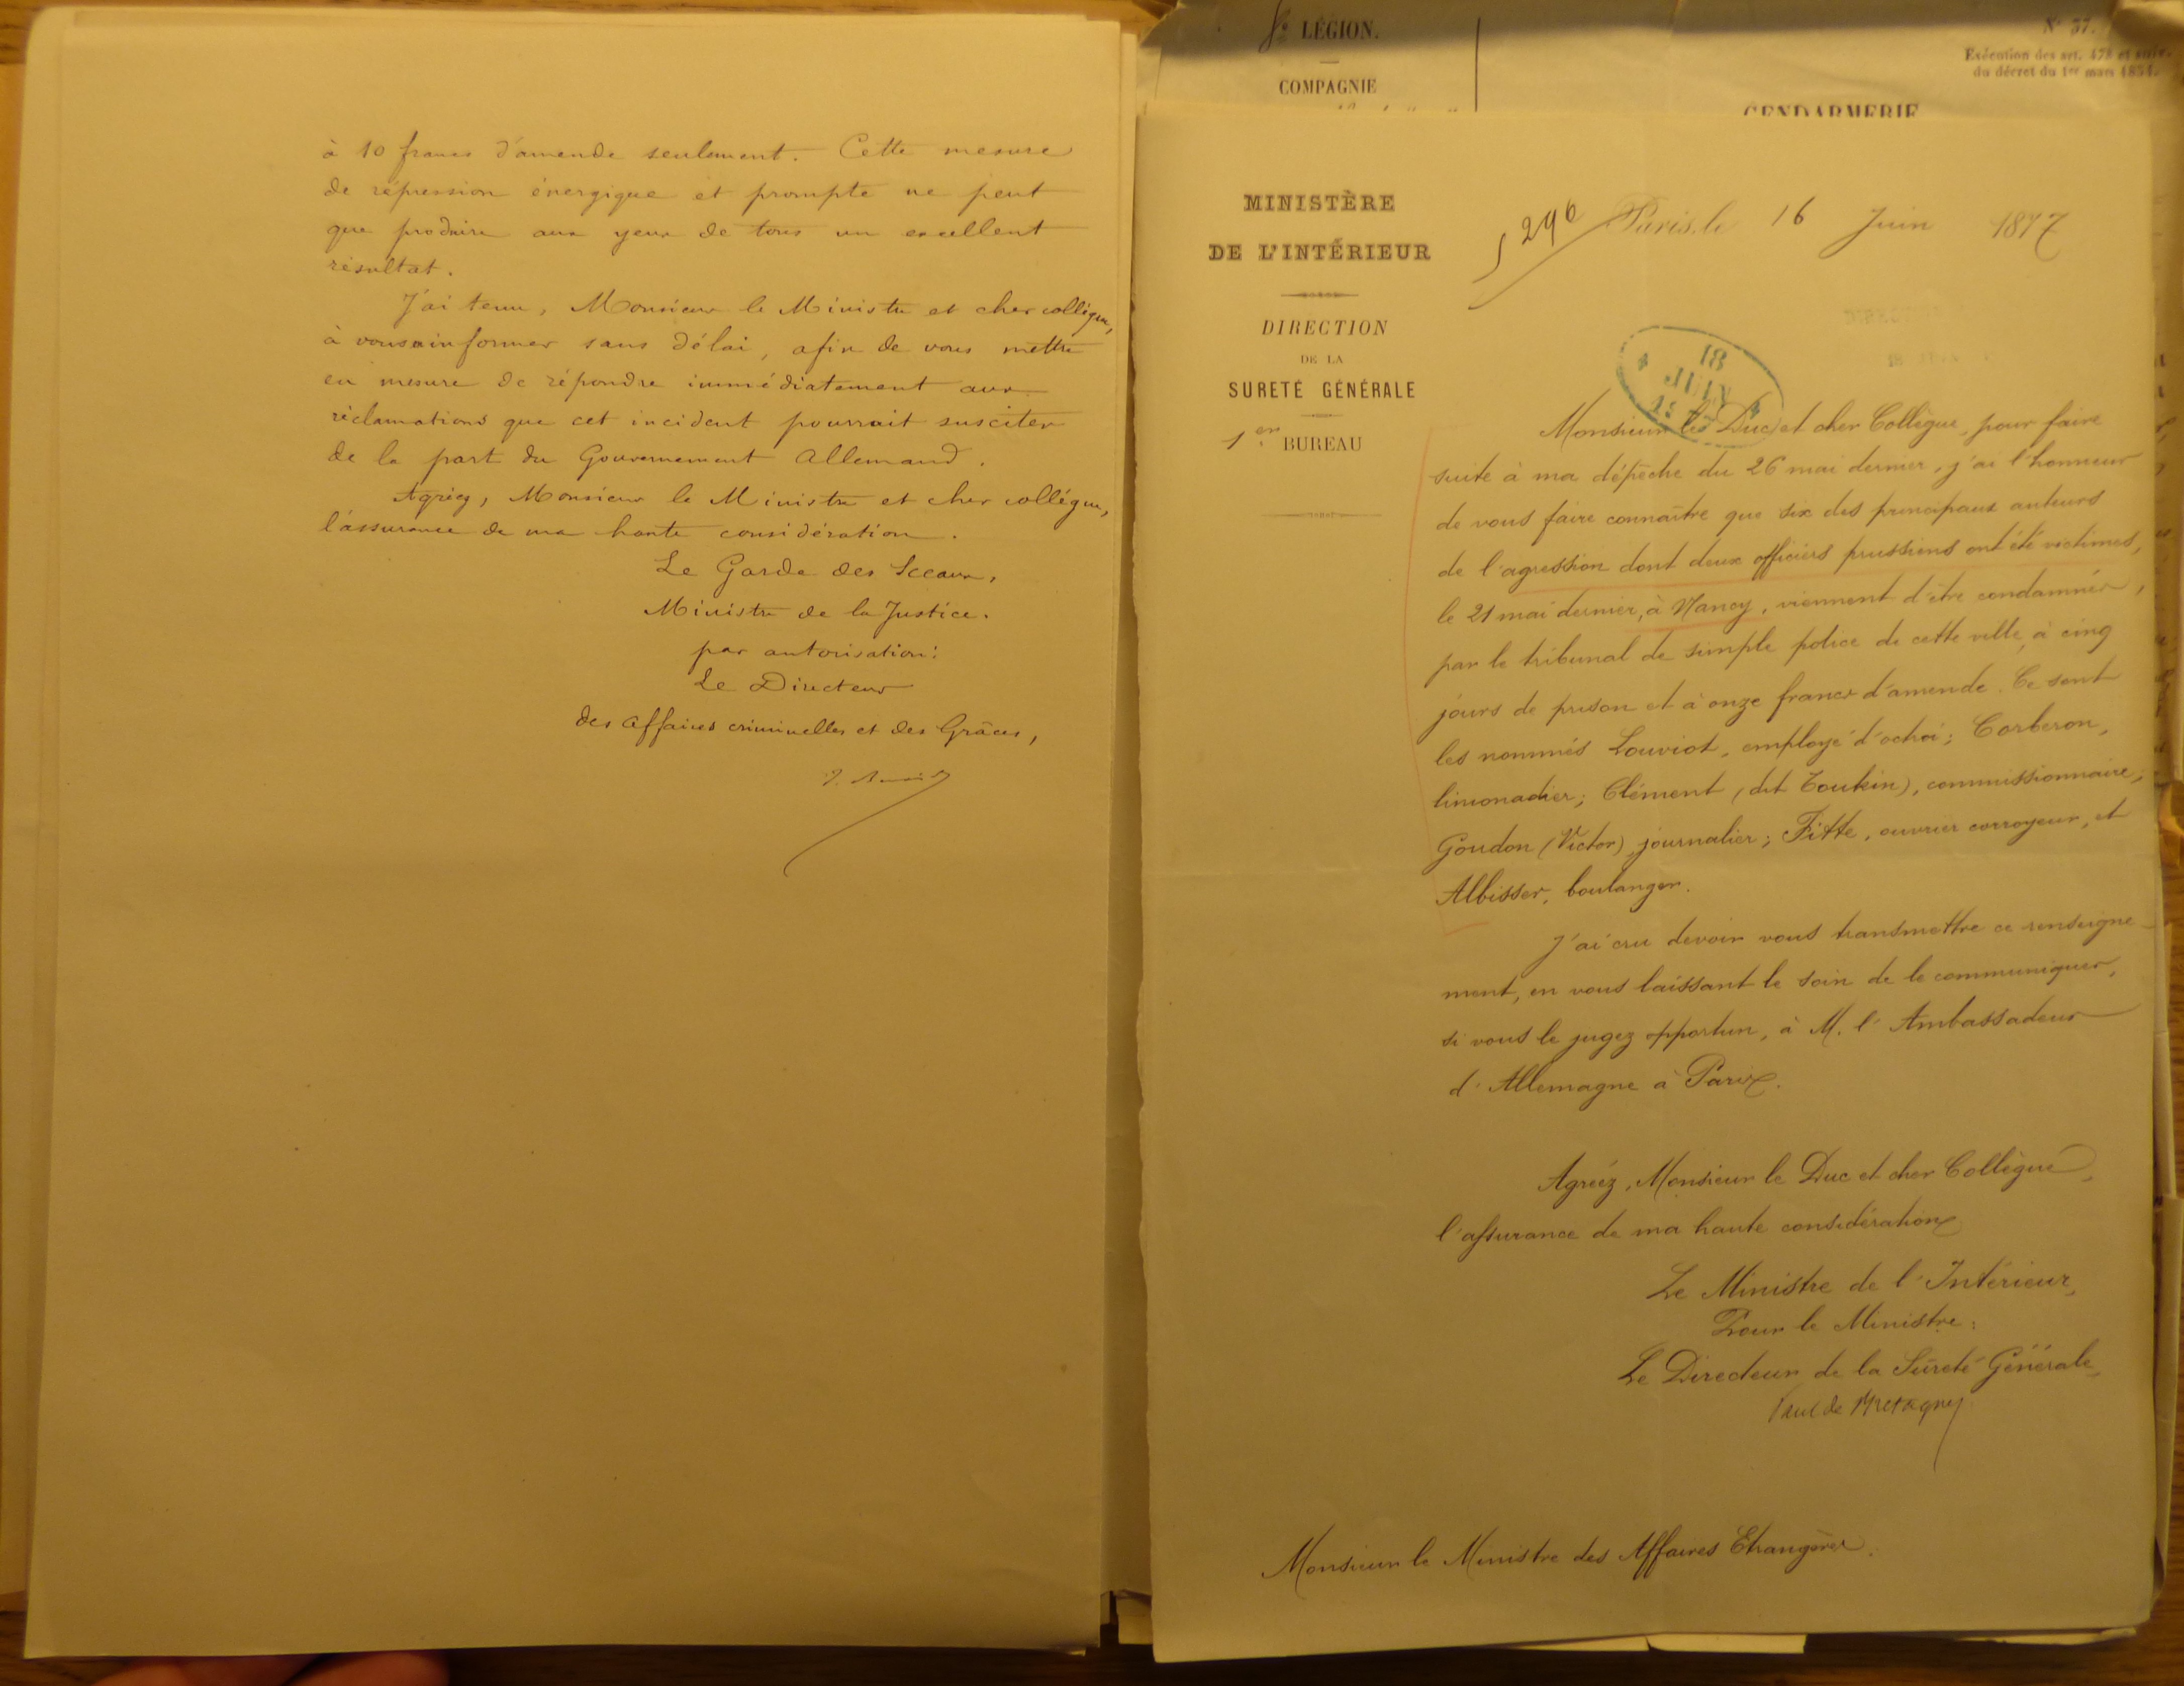 à 10 francs d'amende seulement. Cette mesure
de répression énergique et prompte ne peut
que produire aux yeux de tous un excellent
résultat.
J'ai tenu, Monsieur le Ministre et cher collègue,
à vous informer sans délai, afin de vous mettre
en mesure de répondre immédiatement aux
réclamations que cet incident pourrait susciter
de la part du Gouvernement Allemand.
Agréez, Monsieur le Ministre et cher collégue,
l'assurance de ma haute considération.
Le Garde des Sceaux,
Ministre de la Justice.
par autorisation:
Le Directeur
des affaires criminelles et des Grâces,
LÉGION.
COMPAGNIE
N° 37.
Exécution des art. 472 et suiv.
du décret du 1er mars 1854.
GENDARMERIE
MINISTÈRE
DE L'INTÉRIEUR
DIRECTION
DE LA
SURETÉ GÉNÉRALE
1er BUREAU
296
Paris, le 16 Juin 1877
18
JUIN
Monsieur le Duc et cher Collègue, pour faire
suite à ma dépêche du 26 mai dernier, j'ai l'honneur
de vous faire connaître que six des principaux auteurs
de l'agression dont deux officiers prussiens ont été victimes,
le 21 mai dernier, à Nancy, viennent d'être condamnés,
par le tribunal de simple police de cette ville, à cinq
jours de prison et à onze francs d'amende. Ce sont
les nommés Louviot, employé d'octroi; Corberon,
limonadier; Clément (dit Toukin), commissionnaire;
Goudon (Victor) journalier; Fitte, ouvrier corroyeur, et
Albisser, boulanger.
J'ai cru devoir vous transmettre ce renseigne-
ment, en vous laissant le soin de le communiquer,
si vous le jugez opportun, à M. l'Ambassadeur
d'Allemagne à Paris.
Agréez, Monsieur le Duc et cher Collègue,
l'assurance de ma haute considération
Le Ministre de l'Intérieur,
Pour le Ministre:
Le Directeur de la Sûreté Générale,
Paul de
Monsieur le Ministre des Affaires Etrangères.